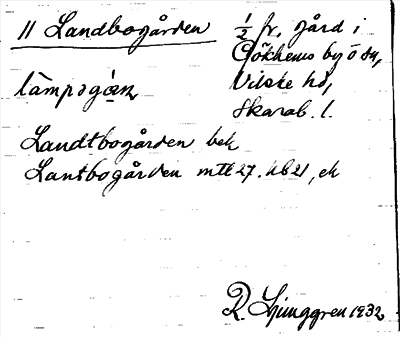 11 Landbogården
½ fr. gård i
Gökhems by o sn,
Vilske hd,
Skarab. l.
Landtbogården bek
Lantbogården mtl 27. kb 21, ek
R. Ljunggren 1932